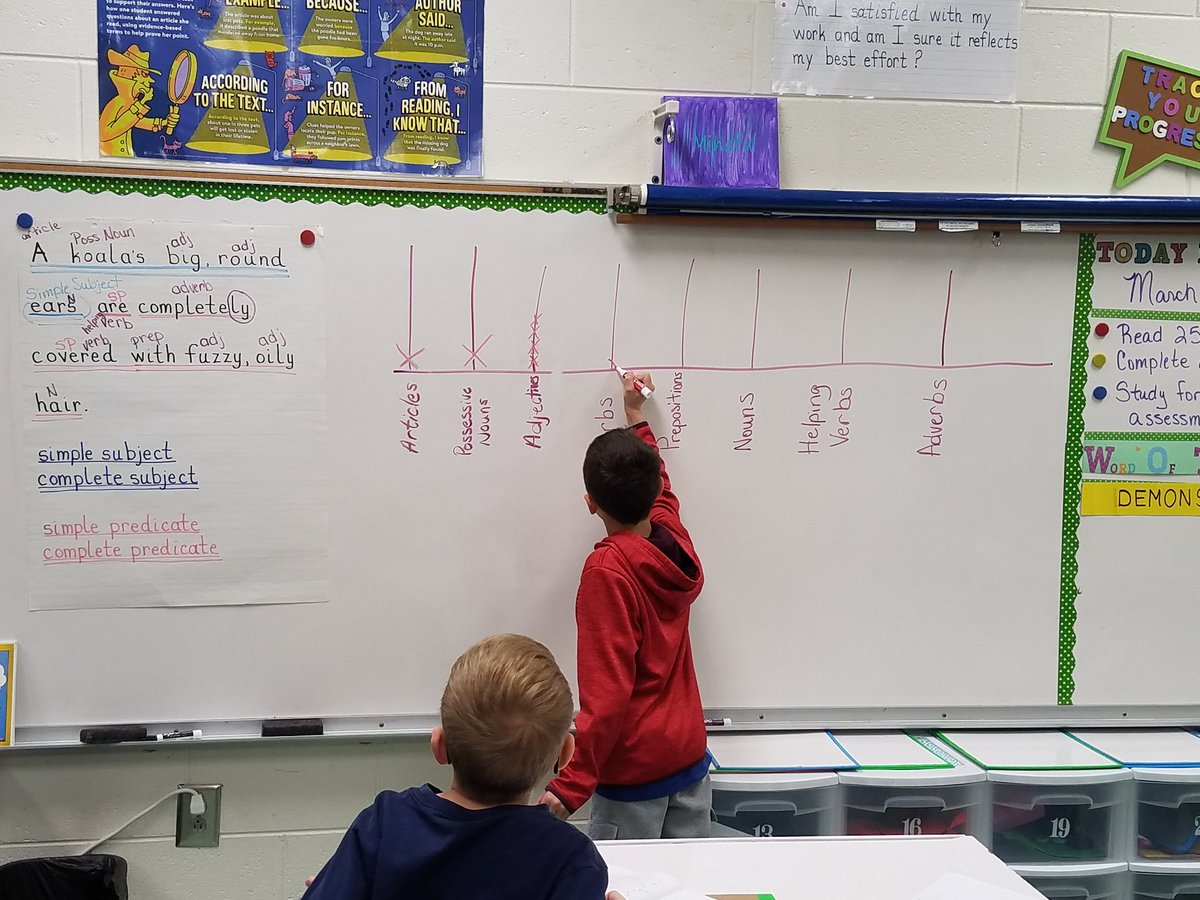 to support their answers. Here's
how one student answered
questions about an article she
read, using evidence-based
terms to help prove her point.
EXAMPLE...
The article was about
lost pets. For example,
it described a poodle that
wandered away from home.
BECAUSE...
The owners were
worried because
the poodle had been
gone for hours.
AUTHOR
SAID...
The dog ran away late
at night. The author said
it was 10 p.m.
ACCORDING
TO THE TEXT...
According to the text,
about one in three pets
will get lost or stolen
in their lifetime.
FOR
INSTANCE...
Clues helped the owners
locate their pup. For instance,
they followed paw prints
across a neighbor's lawn.
FROM
READING, I
KNOW THAT...
From reading, I know
that the missing dog
was finally found.
Am I satisfied with my
work and am I sure it reflects
my best effort?
Mindful
TRAC
YOU
PROGRES
article Poss Noun adj adj
A koala's big, round
Simple Subject N SP adverb
ears are completely
helping verb
SP verb prep adj adj
covered with fuzzy, oily
N
hair.
simple subject
complete subject
simple predicate
complete predicate
Articles
Possessive
Nouns
Adjectives
rbs
Prepositions
Nouns
Helping
Verbs
Adverbs
TODAY
March
Read 25
Complete
Study for
assessm
WORD OF
DEMONS
13
16
19